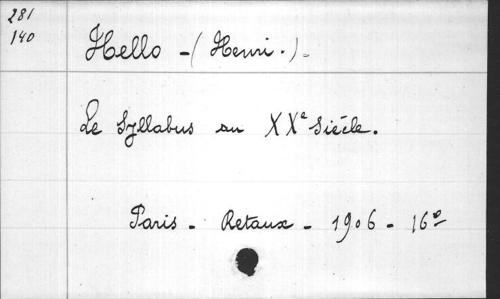 281
140
Hello - (Henri.) -
Le Syllabus au XXe Siècle.
Paris - Retaux - 1906 - 16º